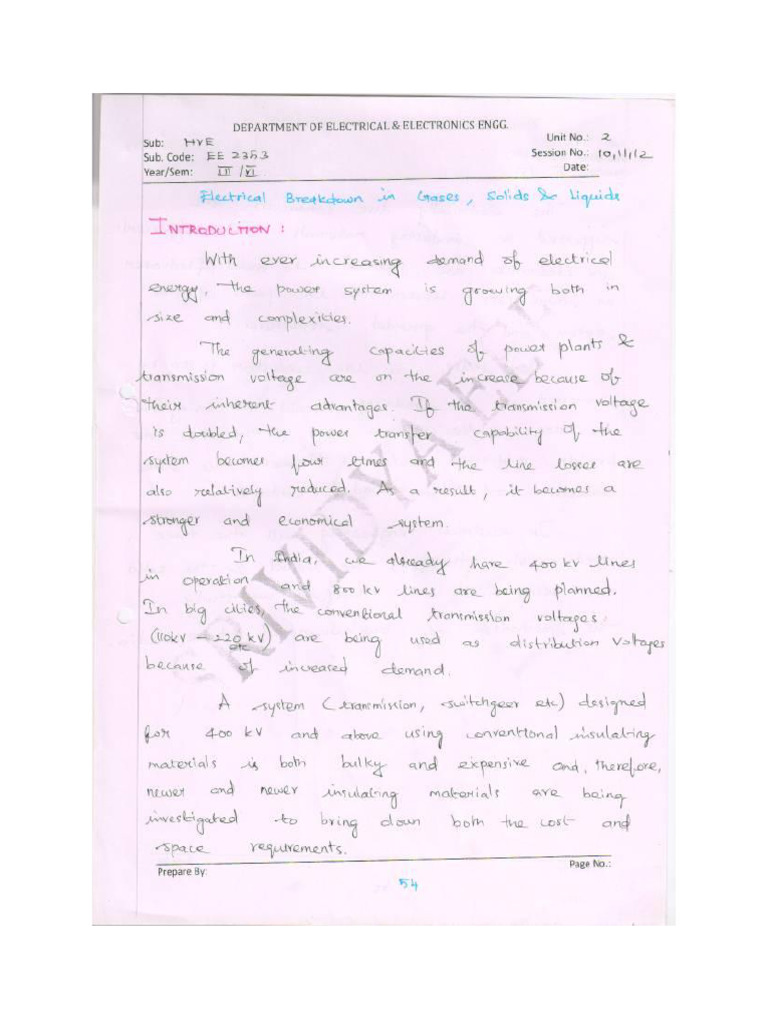 DEPARTMENT OF ELECTRICAL & ELECTRONICS ENGG.
Sub: HVE Unit No.: 2
Sub. Code: EE 2353 Session No.: 10,11,12
Year/Sem: III / VI Date:
Electrical Breakdown in Gases, Solids & Liquids
INTRODUCTION :
With ever increasing demand of electrical
energy, the power system is growing both in
size and complexities.
The generating capacities of power plants &
transmission voltage are on the increase because of
their inherent advantages. If the transmission voltage
is doubled, the power transfer capability of the
system becomes four times and the line losses are
also relatively reduced. As a result, it becomes a
stronger and economical system.
In India, we already have 400 kv lines
in operation and 800 kv lines are being planned.
In big cities, the conventional transmission voltages
(110kv – 220 kv) are being used as distribution voltages
etc
because of increased demand.
A system (transmission, switchgear etc) designed
for 400 kV and above using conventional insulating
materials is both bulky and expensive and, therefore,
newer and newer insulating materials are being
investigated to bring down both the cost and
space requirements.
Prepare By: Page No.:
54
SRIVIDYA EEE